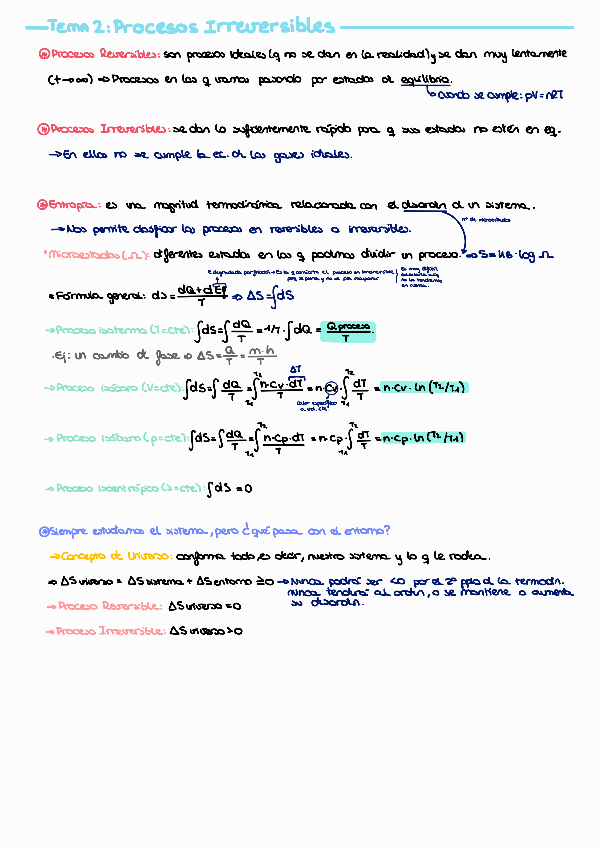 Tema 2: Procesos Irreversibles
Procesos Reversibles: son procesos ideales (q no se dan en la realidad) y se dan muy lentamente
(t→∞) ⇒ Procesos en los q vamos pasando por estados de equilibrio.
Cuando se cumple: pV=nRT
Procesos Irreversibles: se dan lo suficientemente rápido para q sus estados no estén en eq.
→En ellos no se cumple la ec. de los gases ideales.
Entropía: es una magnitud termodinámica relacionada con el desorden de un sistema.
nº de microestados
→Nos permite clasificar los procesos en reversibles o irreversibles.
*Microestados (Ω): diferentes estados en los q podemos dividir un proceso. ⇒ S=kB·log Ω
E degradada por fricción → Es la q convierte el proceso en irreversible,
pues se pierde y no se puede recuperar
Es muy difícil
no la tendremos
en cuenta.
* Fórmula general: dS = dQ+dEf / T ⇒ ΔS=∫dS
→Proceso isotermo (T=cte): ∫dS=∫ dQ/T = 1/T · ∫dQ = Qproceso/T
·Ej: un cambio de fase ⇒ ΔS= Q/T = m·h/T
ΔT
→Proceso isóbaro (V=cte): ∫dS=∫ dQ/T = ∫T1 T2 n·Cv·dT/T = n·Cv·∫T1 T2 dT/T = n·Cv·ln(T2/T1)
calor específico
a vol. cte
→Proceso isóbaro (p=cte): ∫dS=∫ dQ/T = ∫T1 T2 n·Cp·dT/T = n·Cp·∫T1 T2 dT/T = n·Cp·ln(T2/T1)
→Proceso isoentrópico (S=cte): ∫dS = 0
Siempre estudiamos el sistema, pero ¿qué pasa con el entorno?
→Concepto de Universo: conforma todo, es decir, nuestro sistema y lo q le rodea.
⇒ ΔSuniverso = ΔSsistema + ΔSentorno ≥0 → Nunca podrá ser <0 por el 2º ppio de la termodin.
nunca tenderá al orden, o se mantiene o aumenta
su desorden.
→Proceso Reversible: ΔSuniverso=0
→Proceso Irreversible: ΔSuniverso>0